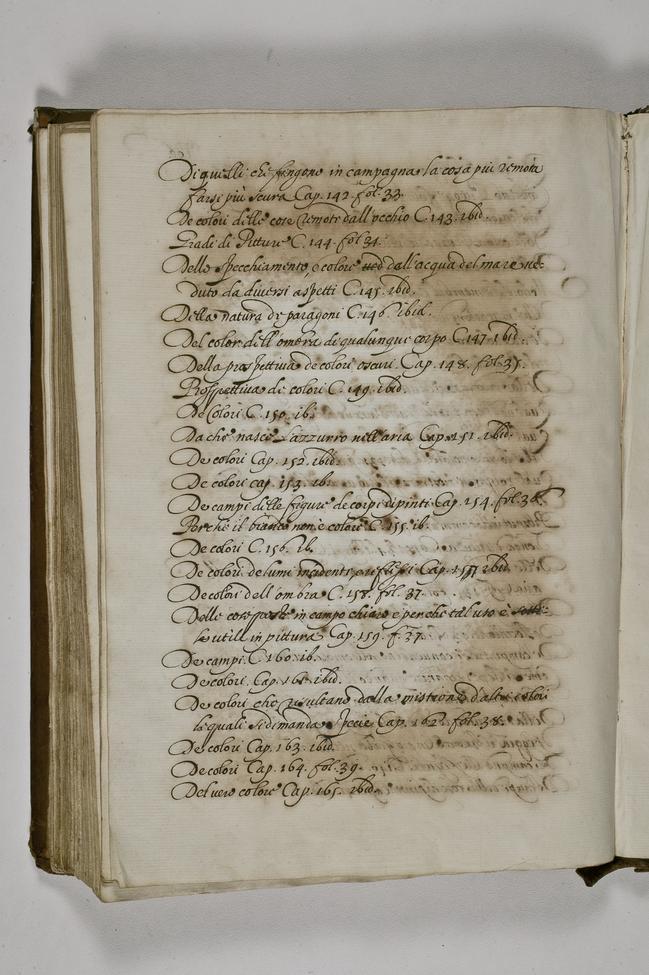 Di quelli che fingono in campagna la cosa più remota
farsi più scura Cap. 142. fol. 33.
De colori delle cose remote dall'occhio C. 143. ibid.
Gradi di Pitture C. 144. fol 34.
Dello specchiamento, e colore dell'acqua del mare ve-
duto da diversi aspetti C. 145. ibid.
Della natura de paragoni C. 146. ibid.
Del color dell'ombra di qualunque corpo C. 147. ibid.
Della prospettiva de colori oscuri. Cap. 148. fol. 35.
Prospettiva de colori C. 149. ibid.
De Colori C. 150. ib.
Da che nasce l'azzurro nell'aria Cap. 151. ibid.
De colori Cap. 152. ibid.
De colori cap. 153. ib.
De campi delle figure de corpi dipinti Cap. 154. fol. 36.
Perche il bianco non è colore C. 155. ib.
De colori C. 156. ib.
De colori de lumi incidenti, e reflessi Cap. 157 ibid.
De colori dell'ombra C. 158. fol. 37.
Delle cose poste in campo chiaro e perche tal uso è
utile in pittura Cap. 159. f. 37.
De campi. C. 160. ib.
De colori. Cap. 161. ibid.
De colori che resultano dalla mistione d'altri colori
le quali si dimanda specie Cap. 162. fol. 38.
De colori Cap. 163. ibid.
De colori Cap. 164. fol. 39.
Del vero colore Cap. 165. ibid.